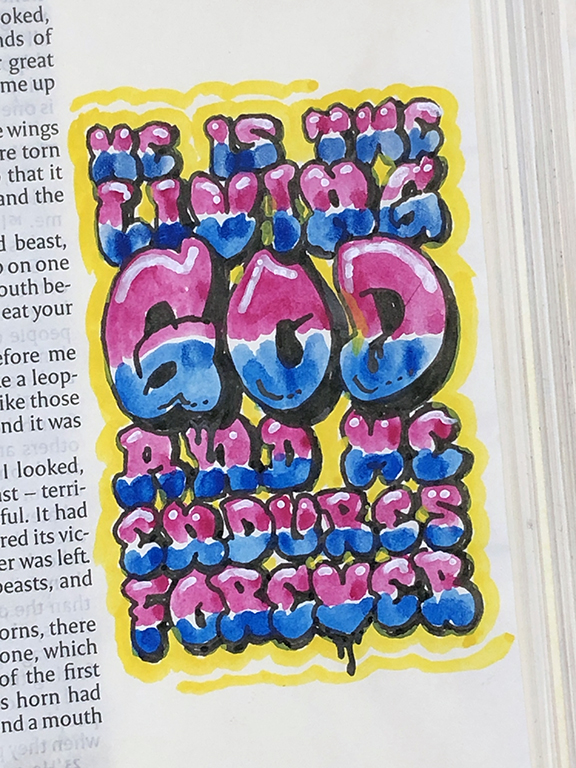 ooked,
nds of
r great
me up
e wings
re torn
that it
and the
d beast,
on one
outh be-
eat your
efore me
ke a leop-
ike those
nd it was
I looked,
ast – terri-
ful. It had
red its vic-
er was left.
beasts, and
orns, there
one, which
of the first
s horn had
nd a mouth
HE IS THE
LIVING
GOD
AND HE
ENDURES
FOREVER